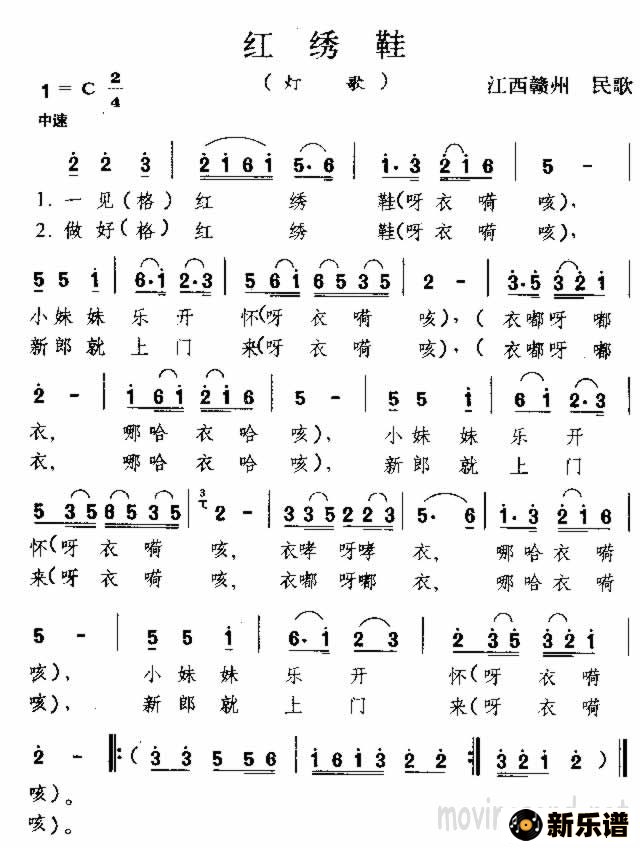 红 绣 鞋
(灯 歌)
1=C 2/4
江西赣州 民歌
中速
2 2 3 | 2 1 6 1 5·6 | 1·3 2 1 6 | 5 - |
1.一见(格) 红 绣 鞋(呀衣嗬 咳),
2.做好(格) 红 绣 鞋(呀衣嗬 咳),
5 5 1 | 6·1 2·3 | 5 6 1 6 5 3 5 | 2 - | 3·5 3 2 1 |
小妹妹乐开 怀(呀衣嗬 咳),(衣嘟呀嘟
新郎就上门 来(呀衣嗬 咳),(衣嘟呀嘟
2 - | 1 6 1 2 1 6 | 5 - | 5 5 1 | 6 1 2·3 |
衣, 哪哈衣哈 咳), 小妹妹乐开
衣, 哪哈衣哈 咳), 新郎就上门
5 3 5 6 5 3 5 | 3 2 - | 3 3 5 2 2 3 | 5· 6 | 1·3 2 1 6 |
怀(呀衣嗬 咳, 衣哮呀哮 衣, 哪哈衣嗬
来(呀衣嗬 咳, 衣嘟呀嘟 衣, 哪哈衣嗬
5 - | 5 5 1 | 6·1 2 3 | 2 3 5 3 2 1 |
咳), 小妹妹 乐开 怀(呀衣嗬
咳), 新郎就 上门 来(呀衣嗬
2 - ‖: ( 3 3 5 5 6 | 1 6 1 3 2 2 :‖ 3 2 1 2 )‖
咳)。
咳)。
新乐谱